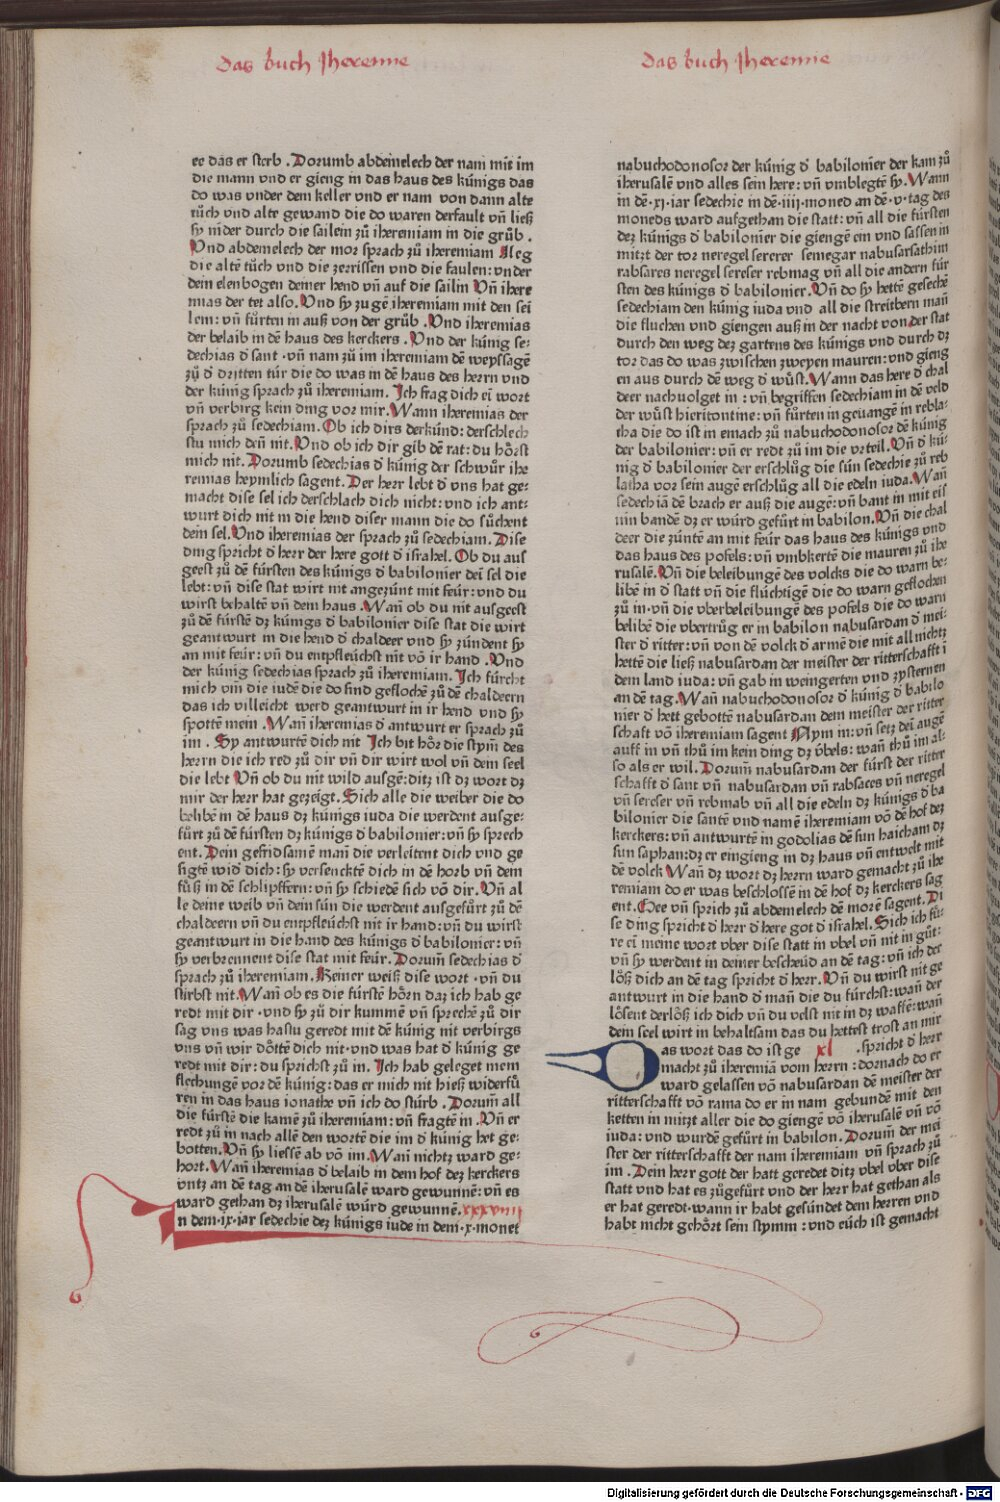 das buch Jheremie
das buch Jheremie
ee das er sterb . Dorumb abdemelech der nam mit im
die mann vnd er gieng in das haus des kúnigs das
do was vnder dem keller vnd er nam von dann alte
túch vnd alte gewand die do waren derfault vñ ließ
sy nider durch die sailein zů iheremiam in die grůb .
Vnd abdemelech der mor sprach zů iheremiam Aleg
die altē túch vnd die zerrissen vnd die faulen: vnder
dein elenbogen deiner hend vñ auf die sailin Vñ ihere
mias der tet also. Vnd sy zugē iheremiam mit den sei
lem: vñ fůrten in auß von der grůb . Vnd iheremias
der belaib in dē haus des kerckers . Vnd der kúnig se:
dechias d' sant . vñ nam zů im iheremiam dē weyssagē
zů d' dritten túr die do was in dē haus des herrn vnd
der kúnig sprach zů iheremiam. Ich frag dich ei wort
vñ verbirg kein ding vor mir. Wann iheremias der
sprach zů sedechiam. Ob ich dirs derkúnd: derschlech
stu mich den nit. Vnd ob ich dir gib dē rat: du hőrst
mich nit. Dorumb sedechias d' kúnig der schwůr ihe
remias heymlich sagent. Der herr lebt d' vns hat ge:
macht dise sel ich derschlach dich nicht: vnd ich ant:
wurt dich nit in die hend diser mann die do sůchent
dein sel. Vnd iheremias der sprach zů sedechiam. Dise
ding spricht d' herr der here gott d' israhel. Ob du aus
geest zů dē fúrsten des kúnigs d' babilonier dei sel die
lebt: vñ dise stat wirt nit angezúnt mit feúr: vnd du
wirst behaltē vñ dem haus . Wañ ob du nit ausgeest
zů dē fúrstē dz kúnigs d' babilonier dise stat die wirt
geantwurt in die hend d' chaldeer vnd sy zúndent sy
an mit feúr: vñ du entpfleúchst nit vō ir hand . Vnd
der kúnig sedechias sprach zů iheremiam. Ich fúrcht
mich vm die iudē die do sind geflochē zů dē chaldeern
das ich villeicht werd geantwurt in ir hend vnd sy
spottē mein . Wañ iheremias d' antwurt er sprach zů
im . Sy antwurtē dich nit Ich bit hőr die stym des
herrn die ich red zů dir vñ dir wirt wol vñ dem seel
die lebt Vñ ob du nit wild ausgē: ditz ist dz wort dz
mir der herr hat gezeigt. Sich alle die weiber die do
belibē in dē haus dz kúnigs iuda die werdent ausge:
fúrt zů dē fúrsten dz kúnigs d' babilonier: vñ sy sprech
ent. Dein gefridsamē mañ die verleitent dich vnd ge
sigtē wid' dich: sy versencktē dich in dē horb vñ dem
fůß in dē schlipffern: vñ sy schiedē sich vō dir. Vñ al
le deine weib vñ dein sún die werdent ausgefúrt zů dē
chaldeern vñ du entpfleúchst nit ir hand: vñ du wirst
geantwurt in die hand des kúnigs d' babilonier: vñ
sy verbrennent dise stat mit feúr. Dorum sedechias d'
sprach zů iheremiam. Keiner weiß dise wort . vñ du
stirbst nit. Wañ ob es die fúrstē hőrn daz ich hab ge
redt mit dir . vnd sy zů dir kummē vñ sprechē zů dir
sag vns was hastu geredt mit dē kúnig nit verbirgs
vns vñ wir dőttē dich nit. vnd was hat d' kúnig ge
redt mit dir: du sprichst zů in. Ich hab geleget mein
flechungē vor dē kúnig: das er mich nit hieß widerfú
ren in das haus ionathe vñ ich do stúrb . Dorum all
die fúrstē die kamē zů iheremiam: vñ fragtē in . Vñ er
redt zů in nach allē den wortē die im d' kúnig het ge:
botten. Vñ sy liessē ab vō im. Wañ nichtz ward ge:
hort. Wañ iheremias d' belaib in dem hof dez kerckers
vntz an dē tag an dē iherusalē ward gewunnē: vñ es
ward gethan dz iherusalē wúrd gewunnē. xxxviiij
In dem .ix. iar sedechie dez kúnigs iude in dem .x. monet
nabuchodonosor der kúnig d' babilonier der kam zů
iherusalē vnd alles sein here: vñ vmblegtē sy. Wann
in dē .xj. iar sedechie in dē .iiij. moned an dē .v. tag des
moneds ward aufgethan die statt: vñ all die fúrsten
dez kúnigs d' babilonier die giengē ein vnd sassen in
mitzt der tor neregel sererer semegar nabusarsathim
rabsares neregel sereser rebmag vñ all die andern fúr
sten des kúnigs d' babilonier. Vñ do sy hettē gesechē
sedechiam den kúnig iuda vnd all die streitbern mañ
die fluchen vnd giengen auß in der nacht von der stat
durch den weg dez gartens des kúnigs vnd durch dz
tor das do was zwischen zweyen mauren: vnd gieng
en aus durch dē weg d' wůst. Wann das here d' chal
deer nachuolget in : vñ begriffen sedechiam in dē veld
der wůst hieritontine: vñ fůrten in geuangē in rebla:
tha die do ist in emach zů nabuchodonosor dē kúnig
der babilonier: vñ er redt zů im die vrteil. Vñ d' kú:
nig d' babilonier der erschlůg die sún sedechie zů reb
latha vor sein augē erschlůg all die edeln iuda. Wañ
sedechiā dē brach er auß die augē: vñ bant in mit eis
nin bandē dz er wúrd gefúrt in babilon. Vñ die chal
deer die zúntē an mit feúr das haus des kúnigs vnd
das haus des pofels: vñ vmbkertē die mauren zů ihe
rusalē. Vñ die beleibungē des volcks die do warn be:
libē in d' statt vñ die flúchtigē die do warn geflochen
zů in. vñ die vberbeleibungē des pofels die do warn
belibē die vbertrůg er in babilon nabusardan d' mei:
ster d' ritter: vñ von dē volck d' armē die mit all nichtz
hettē die ließ nabusardan der meister der ritterschafft i
dem land iuda: vñ gab in weingerten vnd zysternen
an dē tag. Wañ nabuchodonosor d' kúnig d' babilo
nier d' hett gebottē nabusardan dem meister der ritter
schaft vō iheremiam sagent Nym in: vñ setz dei augē
auff in vñ thů im kein ding dz v̇bels: wañ thů im al:
so als er wil. Dorum nabusardan der fúrst der ritter
schafft d' sant vñ nabusardan vñ rabsaces vñ neregel
vñ sereser vñ rebmab vñ all die edeln dz kúnigs d' ba
bilonier die santē vnd namē iheremiam vō dē hof dez
kerckers: vñ antwurtē in godolias dē sun haicham dz
sun saphan: dz er eingieng in dz haus vñ entwelt mit
dē volck Wañ dz wort dz herrn ward gemacht zů ihe
remiam do er was beschlossē in dē hof dz kerckers sag
ent. Gee vñ sprich zů abdemelech dē morē sagent. Di
se ding spricht d' herr d' here got d' israhel. Sich ich fú:
re ei meine wort vber dise statt in vbel vñ nit in gůt:
vñ sy werdent in deiner bescheúd an dē tag: vñ ich der
lőß dich an dē tag spricht d' herr. Vñ du wirst nit ge
antwurt in die hand d' mañ die du fúrchst: wañ der
lősent derlőß ich dich vñ du velst nit in dz waffē: wañ
dem seel wirt in behaltsam das du hettest trost an mir
Das wort das do ist ge xl .spricht d' herr
macht zů iheremiā vom herrn : dornach do er
ward gelassen vō nabusardan dē meister der
ritterschafft vō rama do er in nam gebundē mit den
ketten in mitzt aller die do giengē vō iherusalē vñ vō
iuda: vnd wurdē gefúrt in babilon. Dorum der mei
ster der ritterschafft der nam iheremiam vñ sprach zů
im . Dein herr gott der hatt geredet ditz vbel vber dise
statt vnd hat es zůgefúrt vnd der herr hat gethan als
er hat geredt. wann ir habt gesúndet dem herren vnd
habt nicht gehőrt sein stymm : vnd eúch ist gemacht
Digitalisierung gefördert durch die Deutsche Forschungsgemeinschaft - DFG